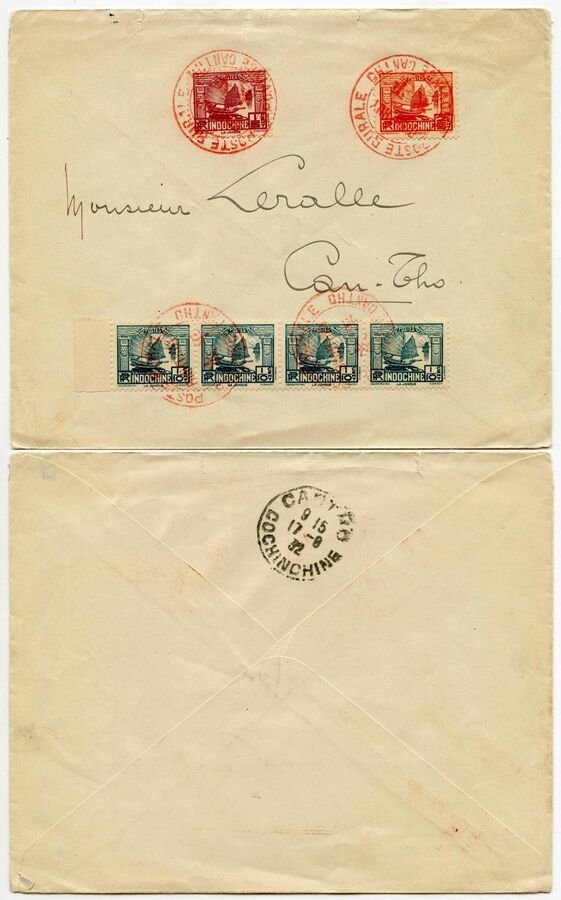 POSTES
INDOCHINE
POSTE RURALE CANTHO
POSTES
INDOCHINE
POSTE RURALE CANTHO
Monsieur Leralle
Can-Tho
POSTES
INDOCHINE
1/10
LA JONQUE
POSTES
INDOCHINE
1/10
LA JONQUE
POSTES
INDOCHINE
1/10
LA JONQUE
POSTES
INDOCHINE
1/10
LA JONQUE
CANTHO
9 15
17 -8
32
COCHINCHINE